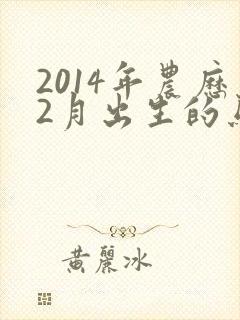 2014年農歷
2月出生的
黃麗冰